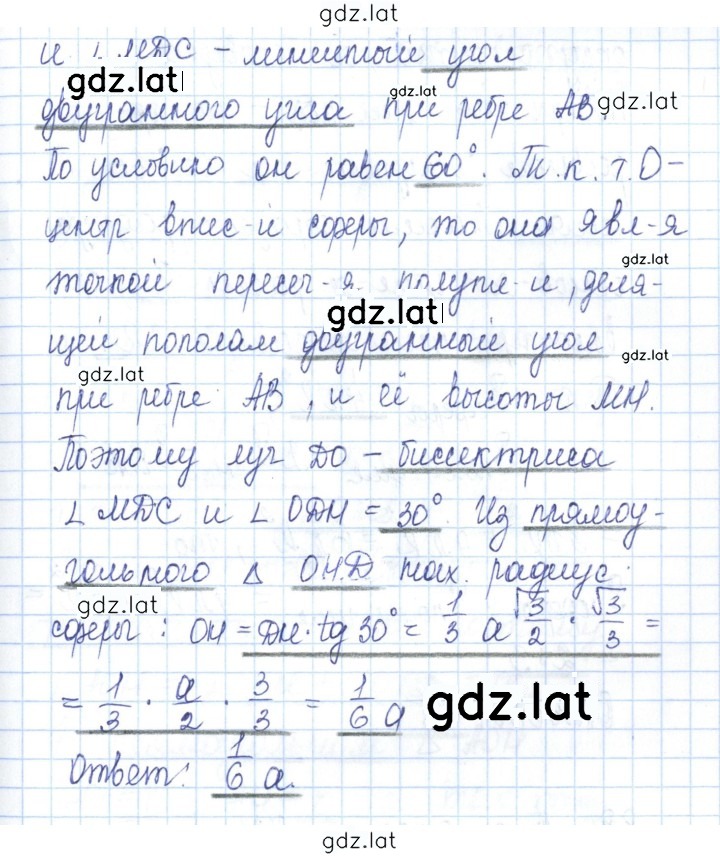 gdz.lat
и ∠ MDC – линейный угол
gdz.lat
gdz.lat
двугранного угла при ребре AB.
gdz.lat
По условию он равен 60°. Т.к. т. O –
центр впис-й сферы, то она явл-я
gdz.lat
точкой пересеч-я полупл-и, деля-
gdz.lat
щей пополам двугранный угол
gdz.lat
gdz.lat
при ребре AB, и её высоты MH.
Поэтому луч DO – биссектриса
∠ MDC и ∠ ODH = 30°. Из прямоу-
гольного Δ OHD нах. радиус
gdz.lat
сферы: OH = DH · tg 30° = 1/3 a √3/2 · √3/3 =
= 1/3 · a/2 · 3/3 = 1/6 a
gdz.lat
Ответ: 1/6 a.
gdz.lat